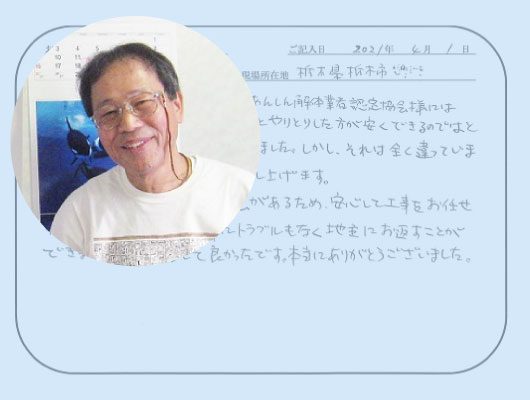 ご記入日 2021年 6月 1日
現場所在地 栃木県栃木市
あんしん解体業者認定協会様には
とやりとりした方が安くできるのではと
ました。しかし、それは全く違っていま
し上げます。
があるため、安心して工事をお任せ
トラブルもなく地主にお返すことが
でき
て良かったです。本当にありがとうございました。